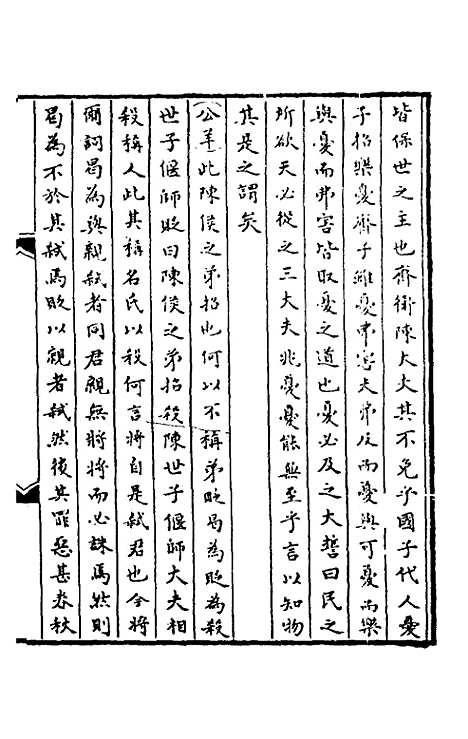 皆保世之主也齊衛陳大夫其不免乎國子代人憂
子招樂憂齊子雖憂弗害夫弗及而憂與可憂而樂
與憂而弗害皆取憂之道也憂必及之大誓曰民之
所欲天必從之三大夫兆憂憂能無至乎言以知物
其是之謂矣
公羊此陳侯之弟招也何以不稱弟貶曷為貶為殺
世子偃師貶曰陳侯之弟招殺陳世子偃師大夫相
殺稱人此其稱名氏以殺何言將自是弑君也今將
爾詞曷為與親弑者同君親無將將而必誅焉然則
曷為不於其弑焉貶以親者弑然後其罪惡甚春秋